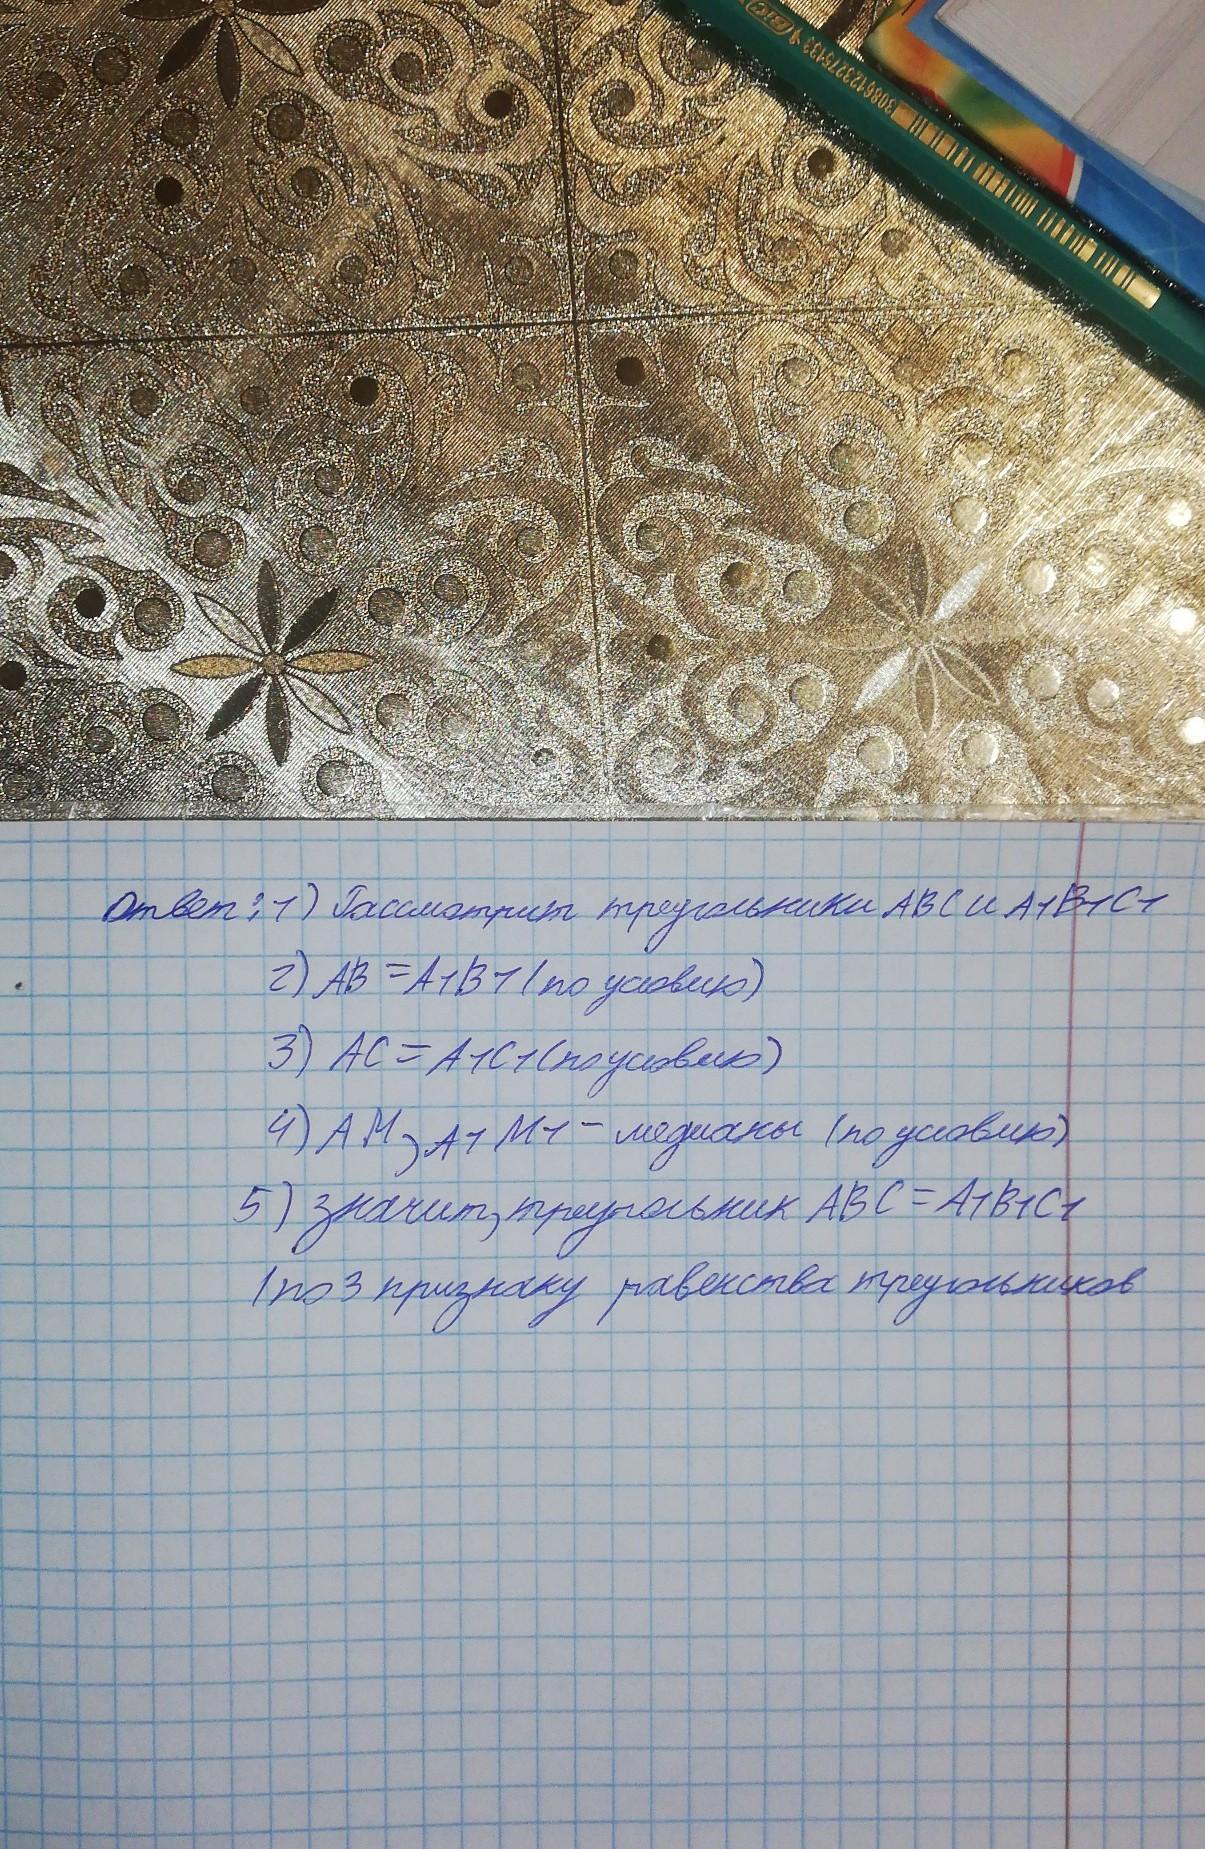 BIC
3086123275133
Ответ: 1) Рассмотрим треугольники ABC и A1B1C1
2) AB = A1B1 (по условию)
3) AC = A1C1 (по условию)
4) AM, A1M1 - медианы (по условию)
5) значит, треугольник ABC = A1B1C1
(по 3 признаку равенства треугольников